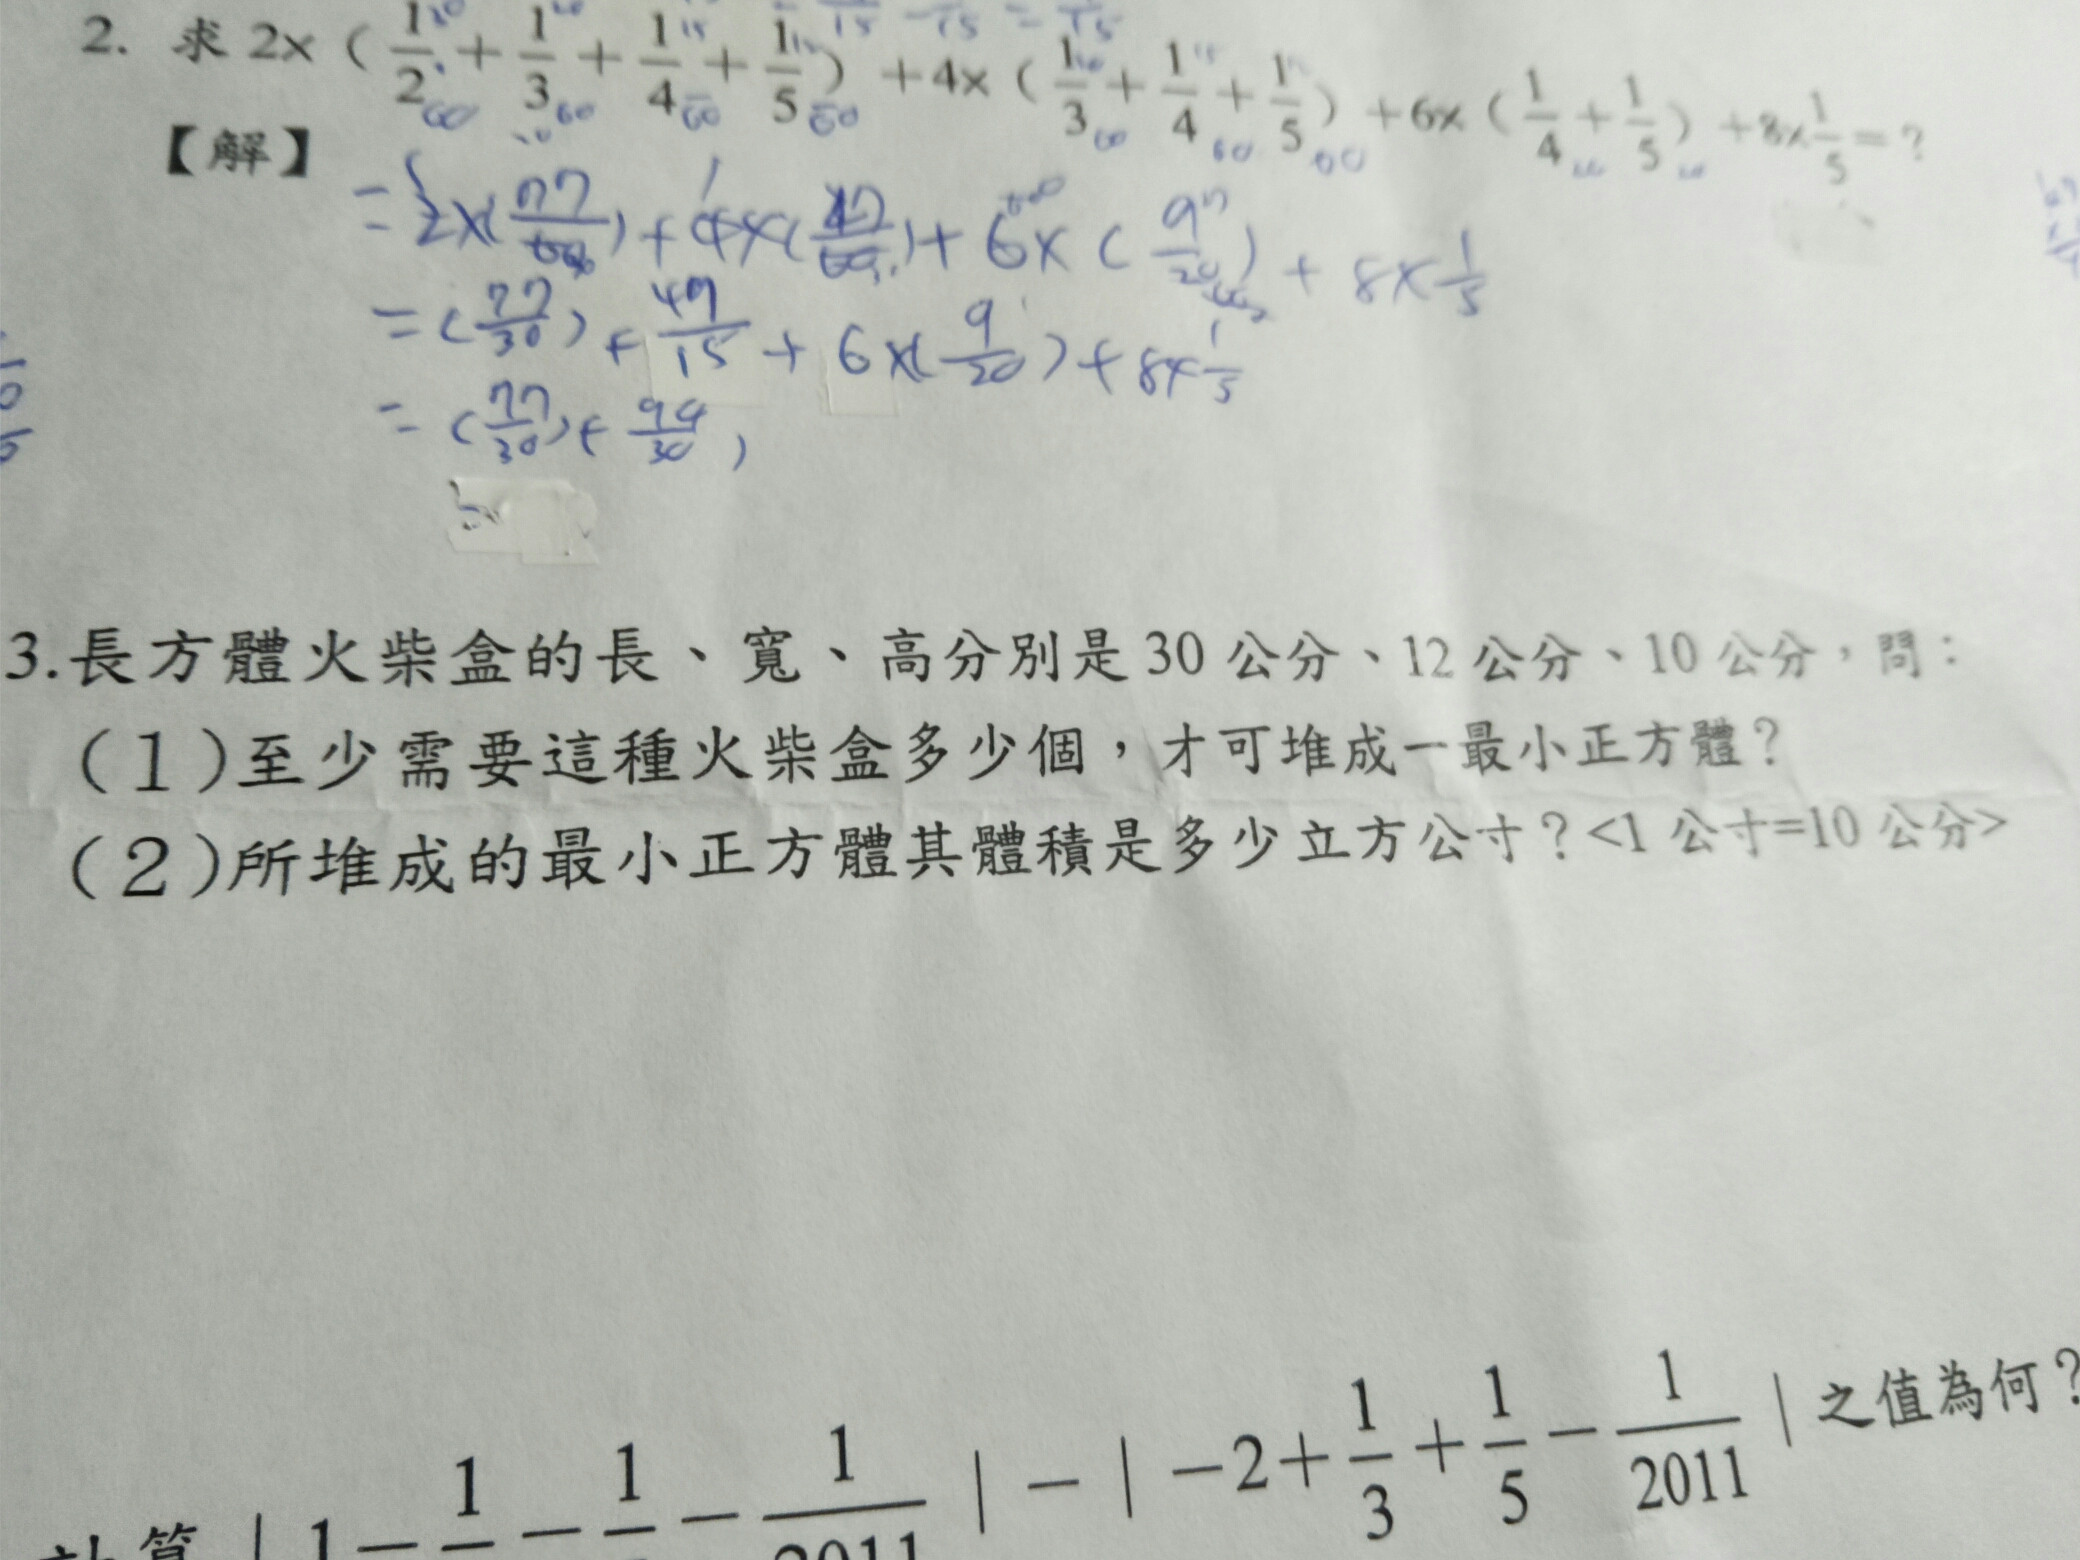 2. 求 2×(1/2+1/3+1/4+1/5)+4×(1/3+1/4+1/5)+6×(1/4+1/5)+8×1/5=?
【解】
=2×(77/60)+4×(47/60)+6×(9/20)+8×1/5
=(77/30)+47/15+6×(9/20)+8×1/5
=(77/30)+94/30
3.長方體火柴盒的長、寬、高分別是30公分、12公分、10公分,問:
(1)至少需要這種火柴盒多少個,才可堆成一最小正方體?
(2)所堆成的最小正方體其體積是多少立方公寸?<1公寸=10公分>
計算|1-1/-1/-1/2011|-|-2+1/3+1/5-1/2011|之值為何?